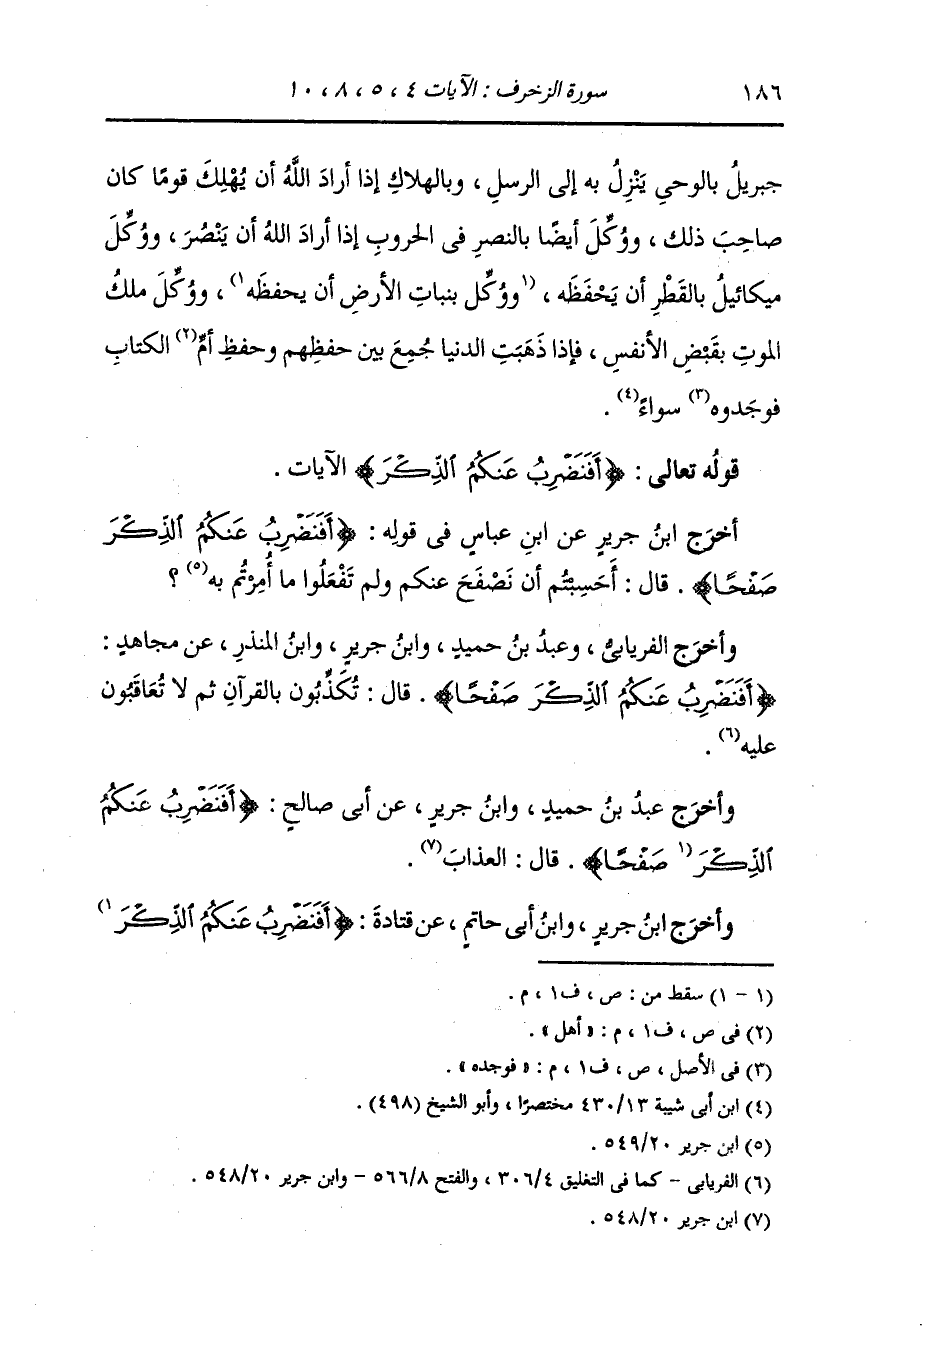 ١٨٦ سورة الزخرف : الآيات ٤ ، ٥ ، ٨ ، ١٠
جبريلُ بالوحيِ يَنْزِلُ به إلى الرسلِ ، وبالهلاكِ إذا أرادَ اللَّهُ أن يُهْلِكَ قومًا كان
صاحِبَ ذلك ، ووُكِّلَ أيضًا بالنصرِ فى الحروبِ إذا أرادَ اللهُ أن يَنْصُرَ ، ووُكِّلَ
ميكائيلُ بالقَطْرِ أن يَحْفَظَه ، (١ووُكِّل بنباتِ الأرضِ أن يحفظَه١) ، ووُكِّلَ ملكُ
الموتِ بقَبْضِ الأنفسِ ، فإذا ذَهَبَتِ الدنيا جُمِعَ بين حفظِهم وحفظِ أمِّ(٢) الكتابِ
فوجَدوه(٣) سواءً(٤) .
قولُه تعالى : ﴿أَفَنَضْرِبُ عَنكُمُ ٱلذِّكْرَ﴾ الآيات .
أخرَج ابنُ جريرٍ عن ابنِ عباسٍ فى قولِه : ﴿أَفَنَضْرِبُ عَنكُمُ ٱلذِّكْرَ
صَفْحًا﴾ . قال : أَحَسِبْتُم أن نَصْفَحَ عنكم ولم تَفْعَلُوا ما أُمِرْتُم به(٥) ؟
وأخرَج الفريابىُّ ، وعبدُ بنُ حميدٍ ، وابنُ جريرٍ ، وابنُ المنذرِ ، عن مجاهدٍ :
﴿أَفَنَضْرِبُ عَنكُمُ ٱلذِّكْرَ صَفْحًا﴾ . قال : تُكَذِّبُون بالقرآنِ ثم لا تُعَاقَبُون
عليه(٦) .
وأخرَج عبدُ بنُ حميدٍ ، وابنُ جريرٍ ، عن أبى صالحٍ : ﴿أَفَنَضْرِبُ عَنكُمُ
ٱلذِّكْرَ (١ صَفْحًا﴾ . قال : العذابَ(٧) .
وأخرَج ابنُ جريرٍ ، وابنُ أبى حاتمٍ ، عن قتادةَ : ﴿أَفَنَضْرِبُ عَنكُمُ ٱلذِّكْرَ ١)
(١ - ١) سقط من : ص ، ف١ ، م .
(٢) فى ص ، ف١ ، م : « أهل » .
(٣) فى الأصل ، ص ، ف١ ، م : « فوجده » .
(٤) ابن أبى شيبة ٤٣٠/١٣ مختصرًا ، وأبو الشيخ (٤٩٨) .
(٥) ابن جرير ٥٤٩/٢٠ .
(٦) الفريابى - كما فى التغليق ٣٠٦/٤ ، والفتح ٥٦٦/٨ - وابن جرير ٥٤٨/٢٠ .
(٧) ابن جرير ٥٤٨/٢٠ .